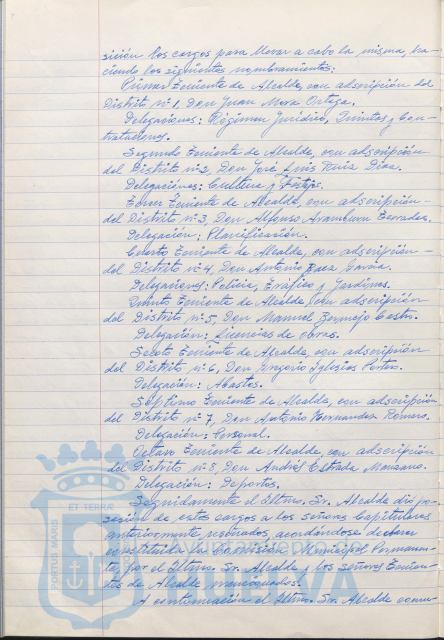 sición los cargos para llevar a cabo la misma, ha-
ciendo los siguientes nombramientos:
Primer Teniente de Alcalde, con adscripción del
Distrito nº 1, Don Juan Mora Ortega.
Delegaciones: Régimen Jurídico, Quintas y Con-
trataciones.
Segundo Teniente de Alcalde, con adscripción
del Distrito nº 2, Don José Luis Ruiz Díaz.
Delegaciones: Cultura y Festejos.
Tercer Teniente de Alcalde, con adscripción
del Distrito nº 3, Don Alfonso Aramburu Terrades.
Delegación: Planificación.
Cuarto Teniente de Alcalde, con adscripción
del Distrito nº 4, Don Antonio Baez
Delegaciones: Policía, Tráfico y Jardines.
Quinto Teniente de Alcalde, con adscripción
del Distrito nº 5, Don Manuel Bermejo Castro.
Delegación: Licencias de obras.
Sexto Teniente de Alcalde, con adscripción
del Distrito nº 6, Don Gregorio Iglesias
Delegación: Abastos.
Séptimo Teniente de Alcalde, con adscripción
del Distrito nº 7, Don Antonio Hernandez Romero.
Delegación: Personal.
Octavo Teniente de Alcalde, con adscripción
del Distrito nº 8, Don Andrés Estrada Manzano.
Delegación: Deportes.
Seguidamente el Iltmo. Sr. Alcalde dió po-
sesión de estos cargos a los señores Capitulares
anteriormente reseñados, acordándose declarar
constituida la Comisión Municipal Permanen-
te, por el Iltmo. Sr. Alcalde y los señores Tenien-
tes de Alcalde mencionados.
A continuación el Iltmo. Sr. Alcalde comu-
ET TERRAE
PORTUS MARIS
HUELVA